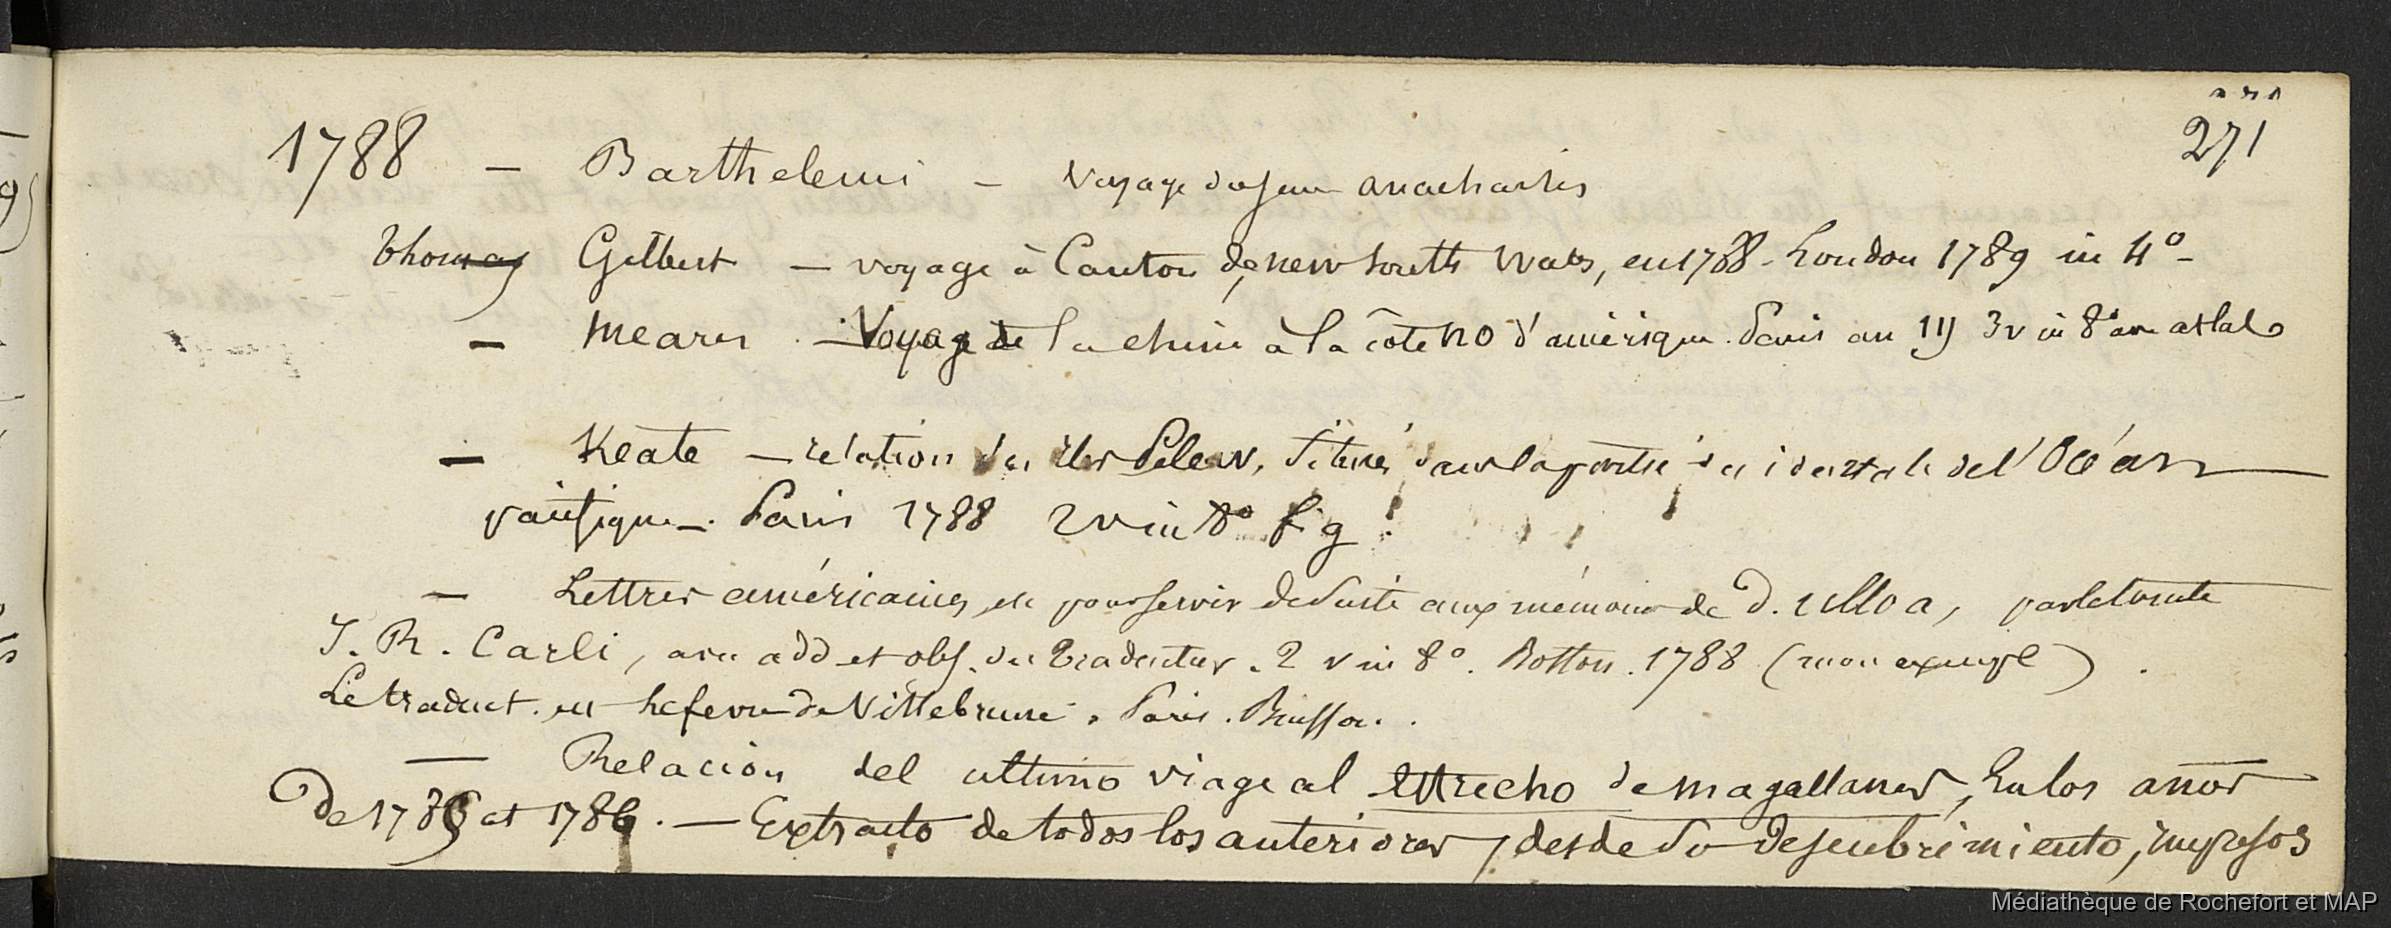 271
1788 – Barthelemi – Voyage du jeune anacharsis
thomas Gilbert – voyage à Canton de new south Wales, en 1788 - London 1789 in 4° -
– Mears – Voyage de la chine à la côte NO d'amérique. Paris an III 3 v in 8° avec atlas
– Keate – relation des îles Pelew, situées dans la partie occidentale de l'Océan
pacifique – Paris 1788 2 v in 8° fig.
– Lettres américaines, pour servir de suite aux mémoires de D. Ulloa, par le comte
J. R. Carli, avec add et obs. du traducteur. 2 v in 8°. Boston. 1788 (mon exempl)
Le traduct. est Lefevre de Villebrune. Paris. Buisson.
– Relacion del ultimo viage al estrecho de magallanes, en los años
De 1785 et 1786. – Extracto de todos los anteriores, desde su descubrimiento, impresos
Médiathèque de Rochefort et MAP